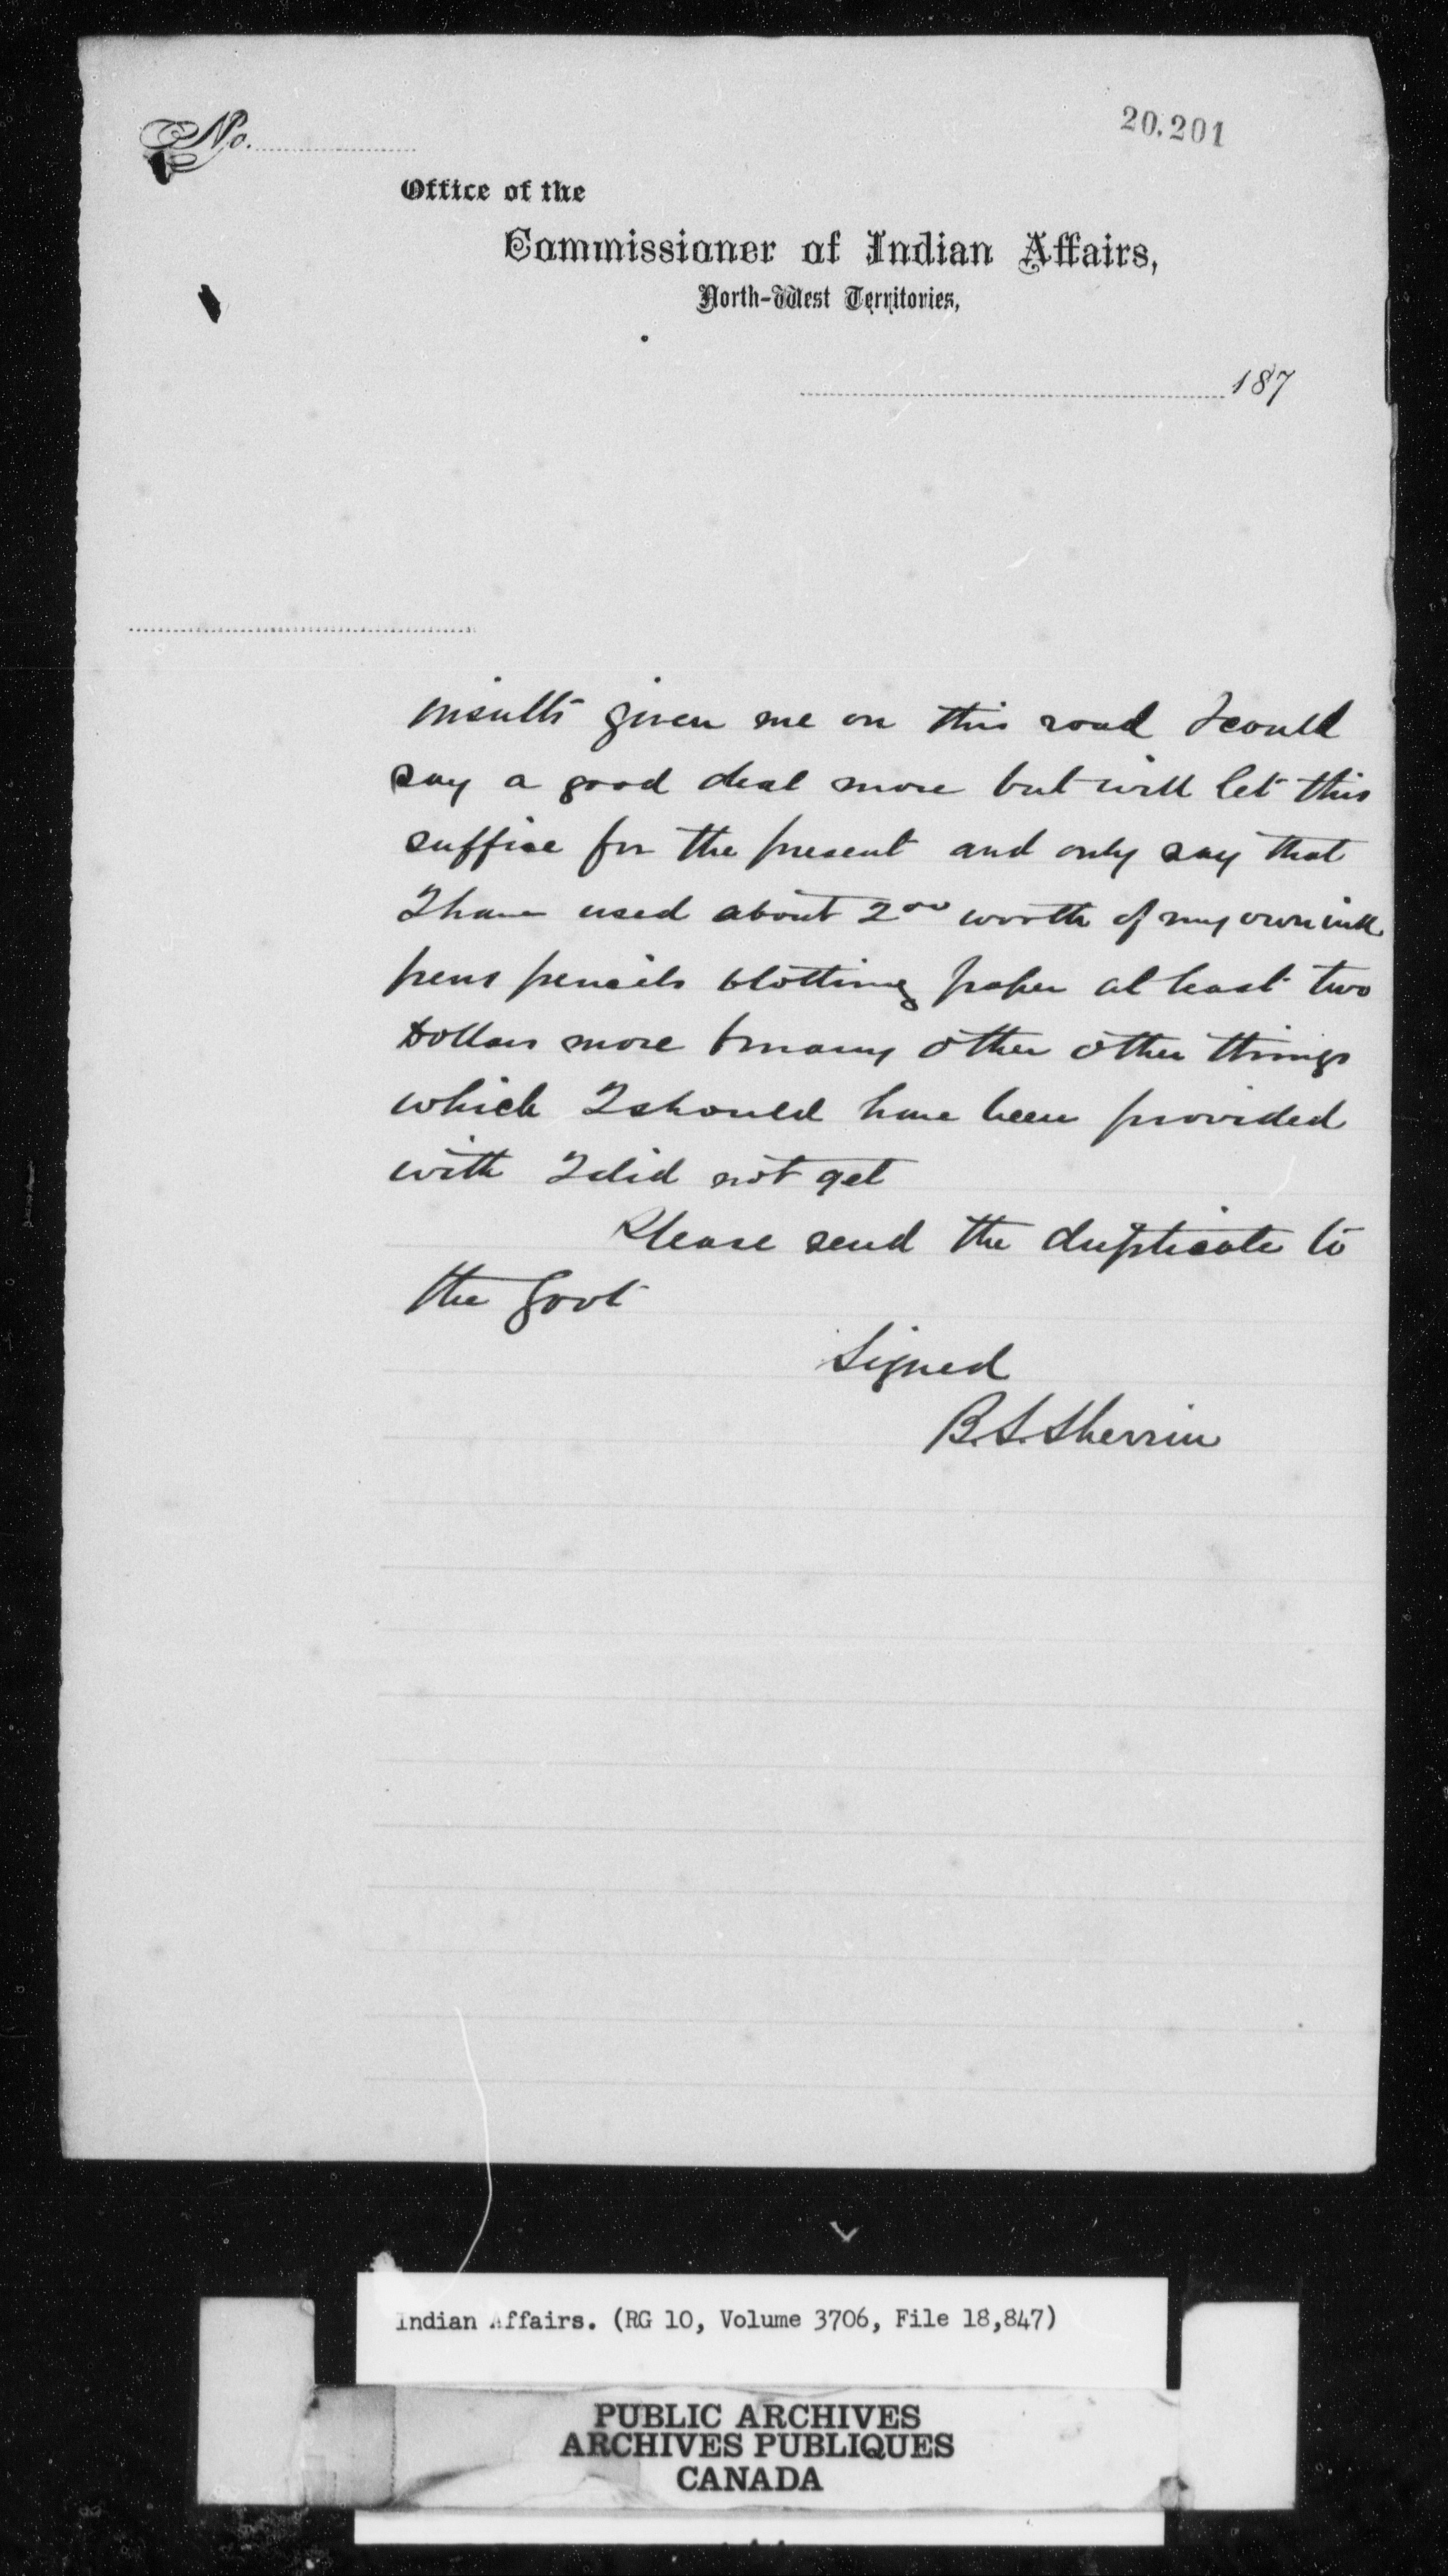 No.
20.201
Office of the
Commissioner of Indian Affairs,
North-West Territories,
187
insults given me on this road I could
say a good deal more but will let this
suffice for the present and only say that
I have used about 2 00 worth of my own ink
pens pencils blotting paper at least two
Dollars more & many other other things
which I should have been provided
with I did not get
Please send the duplicate to
the Govt
Signed
B.S. Sherrin
Indian Affairs. (RG 10, Volume 3706, File 18,847)
PUBLIC ARCHIVES
ARCHIVES PUBLIQUES
CANADA